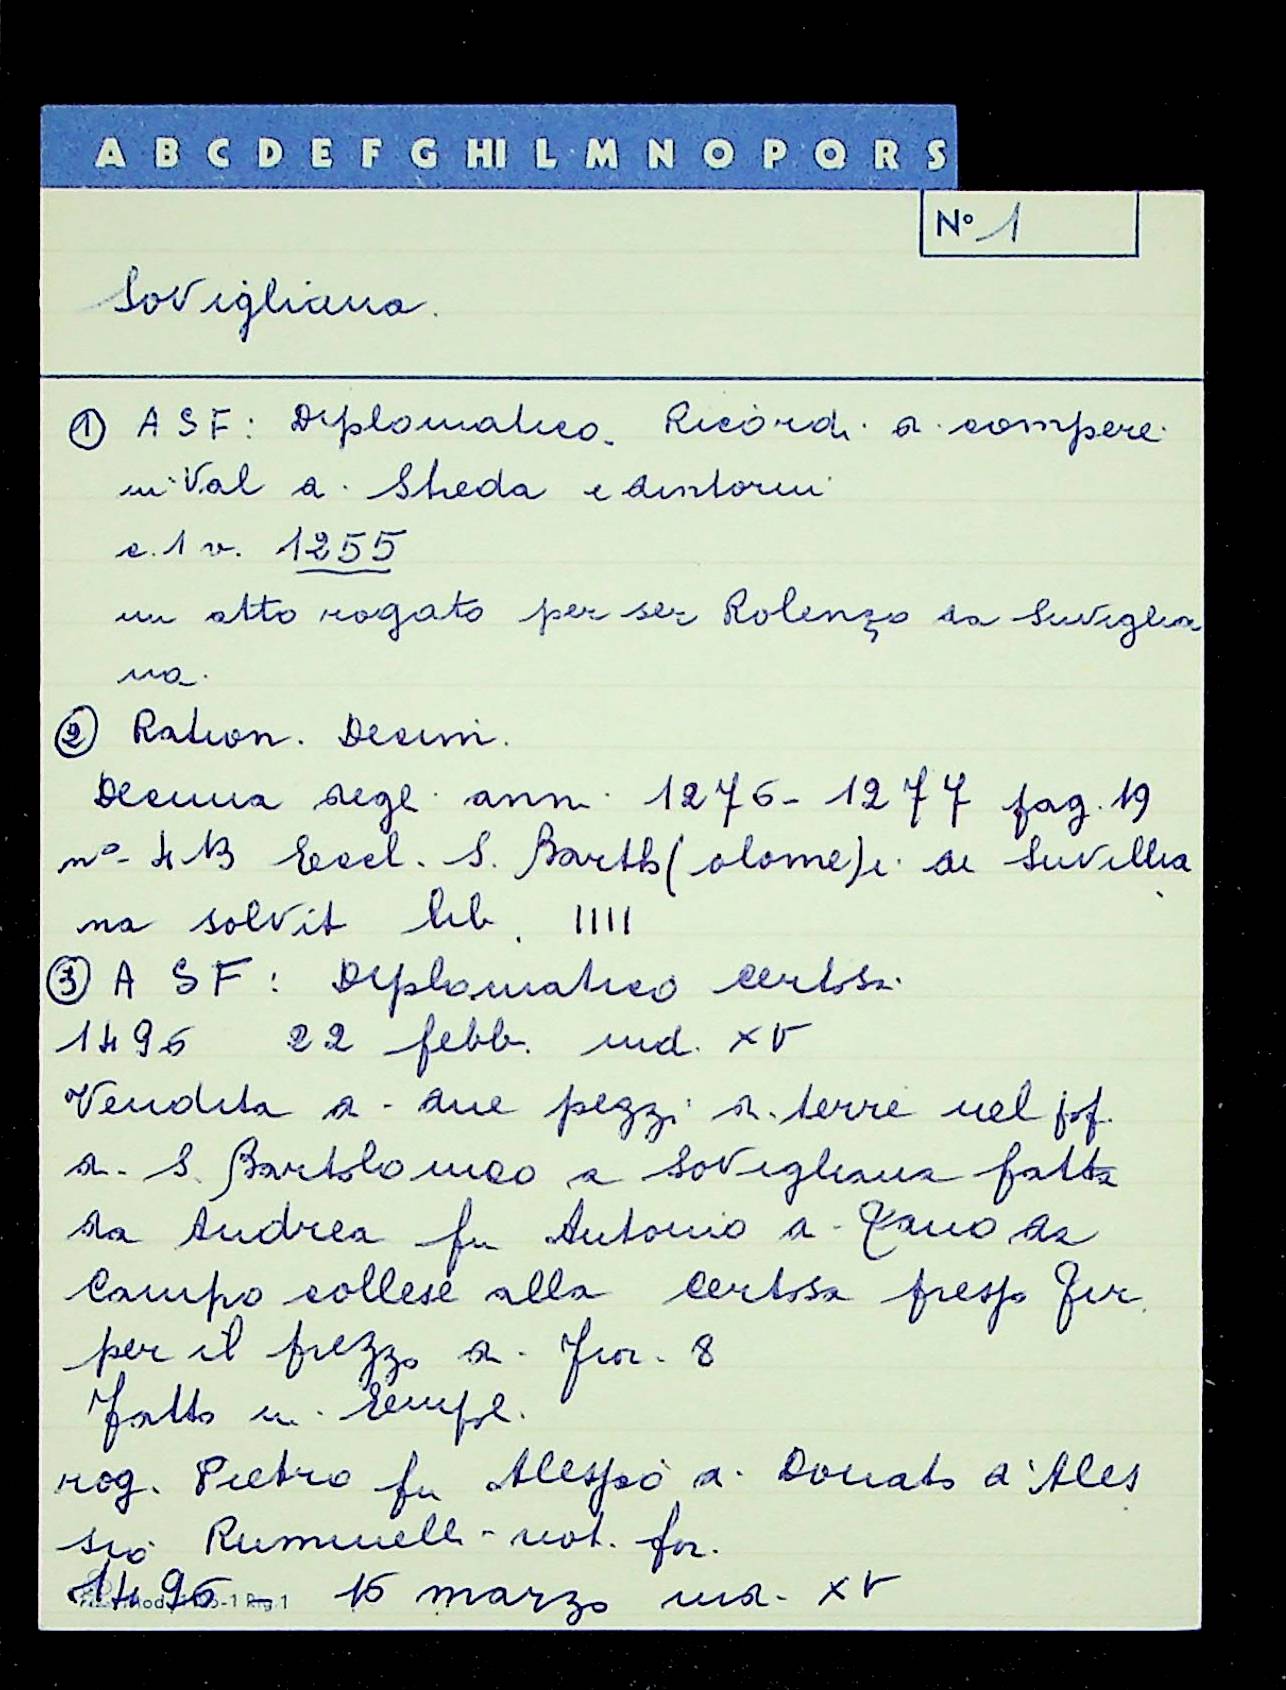 A B C D E F G HI L M N O P Q R S
N° 1
Sovigliana.
① ASF: Diplomatico. Ricordi di compere
in Val di Streda e dintorni
c. 1 v. 1255
un atto rogato per ser Rolenzo da Suviglia
na.
② Ration. Decim.
Decima degl. ann. 1276-1277 pag. 19
n°- 413 Eccl. S. Barth(olome)i de Suvillia
na solvit lib. IIII
③ ASF: Diplomatico Certosa
1496 22 febb. ind. XV
Vendita di due pezzi di terre nel pop.
di S. Bartolomeo a Sovigliana fatta
da Andrea fu Antonio di da
Campo collese alla Certosa presso Fir.
per il prezzo di fior. 8
Fatto in Empoli.
rog. Pietro fu Alessio di Donato d'Ales
sio not. fior.
1496 - 16 marzo ind. XV